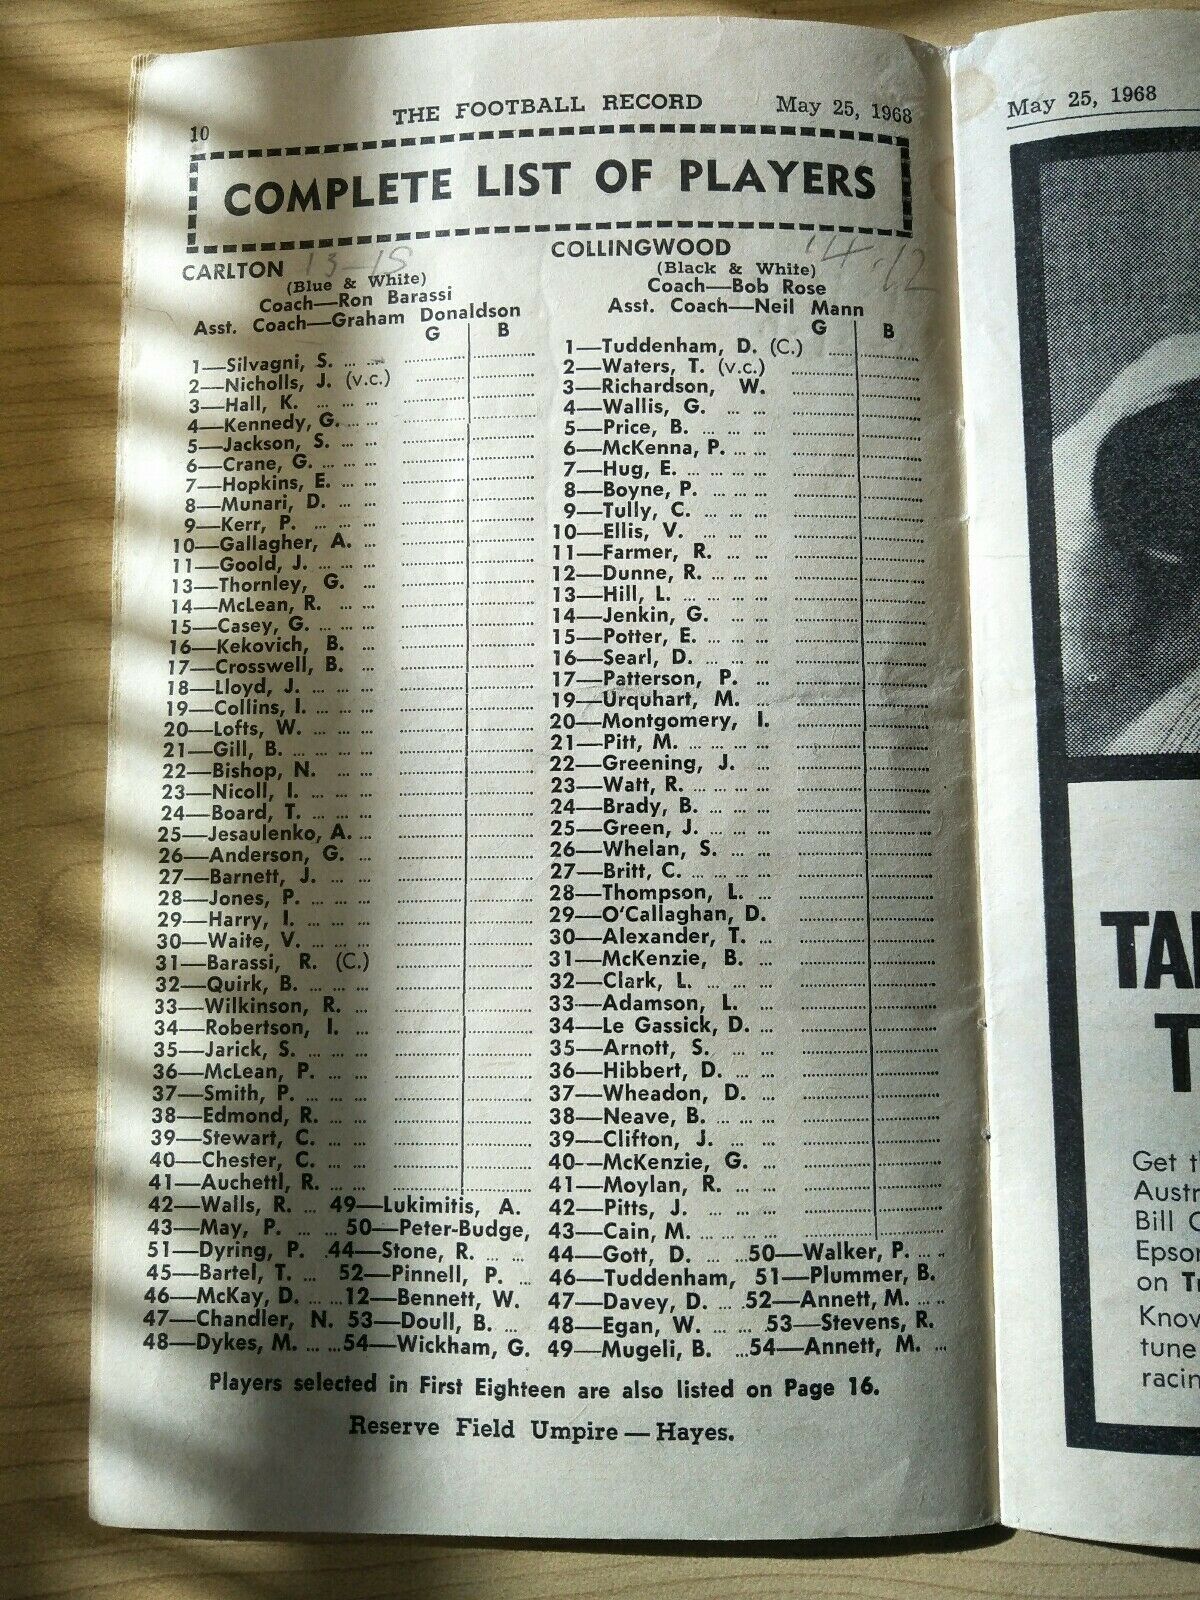 10
THE FOOTBALL RECORD May 25, 1968
COMPLETE LIST OF PLAYERS
CARLTON 13-18
(Blue & White)
Coach—Ron Barassi
Asst. Coach—Graham Donaldson
G B
1—Silvagni, S. ... ...
2—Nicholls, J. (v.c.)
3—Hall, K. ... ... ...
4—Kennedy, G. ... ...
5—Jackson, S. ... ...
6—Crane, G. ... ... ...
7—Hopkins, E. ... ...
8—Munari, D. ... ...
9—Kerr, P. ... ... ...
10—Gallagher, A. ...
11—Goold, J. ... ... ...
13—Thornley, G. ...
14—McLean, R. ... ...
15—Casey, G. ... ... ...
16—Kekovich, B. ...
17—Crosswell, B. ...
18—Lloyd, J. ... ... ...
19—Collins, I. ... ... ...
20—Lofts, W. ... ... ...
21—Gill, B. ... ... ... ...
22—Bishop, N. ... ...
23—Nicoll, I. ... ... ...
24—Board, T. ... ... ...
25—Jesaulenko, A. ...
26—Anderson, G. ...
27—Barnett, J. ... ...
28—Jones, P. ... ... ...
29—Harry, I. ... ... ...
30—Waite, V. ... ... ...
31—Barassi, R. (C.)
32—Quirk, B. ... ... ...
33—Wilkinson, R. ...
34—Robertson, I. ...
35—Jarick, S. ... ... ...
36—McLean, P. ... ...
37—Smith, P. ... ... ...
38—Edmond, R. ... ...
39—Stewart, C. ... ...
40—Chester, C. ... ...
41—Auchettl, R. ... ...
42—Walls, R. ... 49—Lukimitis, A.
43—May, P. ... ... 50—Peter-Budge,
51—Dyring, P. .44—Stone, R. ... ...
45—Bartel, T. ... 52—Pinnell, P. ...
46—McKay, D. ... ...12—Bennett, W.
47—Chandler, N. 53—Doull, B. ...
48—Dykes, M. ... ...54—Wickham, G.
COLLINGWOOD 14.12
(Black & White)
Coach—Bob Rose
Asst. Coach—Neil Mann
G B
1—Tuddenham, D. (C.)
2—Waters, T. (v.c.)
3—Richardson, W.
4—Wallis, G. ... ...
5—Price, B. ... ... ...
6—McKenna, P. ... ...
7—Hug, E. ... ... ... ...
8—Boyne, P. ... ... ...
9—Tully, C. ... ... ...
10—Ellis, V. ... ... ...
11—Farmer, R. ... ...
12—Dunne, R. ... ... ...
13—Hill, L. ... ... ... ...
14—Jenkin, G. ... ...
15—Potter, E. ... ... ...
16—Searl, D. ... ... ...
17—Patterson, P. ...
19—Urquhart, M. ...
20—Montgomery, I.
21—Pitt, M. ... ... ... ...
22—Greening, J. ...
23—Watt, R. ... ... ...
24—Brady, B. ... ... ...
25—Green, J. ... ... ...
26—Whelan, S. ... ...
27—Britt, C. ... ... ...
28—Thompson, L. ...
29—O'Callaghan, D.
30—Alexander, T. ...
31—McKenzie, B. ...
32—Clark, L. ... ... ...
33—Adamson, L. ...
34—Le Gassick, D. ...
35—Arnott, S. ... ...
36—Hibbert, D. ... ...
37—Wheadon, D. ...
38—Neave, B. ... ...
39—Clifton, J. ... ...
40—McKenzie, G. ...
41—Moylan, R. ... ...
42—Pitts, J. ... ... ...
43—Cain, M. ... ... ...
44—Gott, D. ... ...50—Walker, P. ... ..
46—Tuddenham, 51—Plummer, B.
47—Davey, D. ... ...52—Annett, M. ... ..
48—Egan, W. ... ... .53—Stevens, R.
49—Mugeli, B. ...54—Annett, M. ...
Players selected in First Eighteen are also listed on Page 16.
Reserve Field Umpire — Hayes.
May 25, 1968
TA
T
Get t
Austr
Bill
Epso
on T
Know
tune
racin